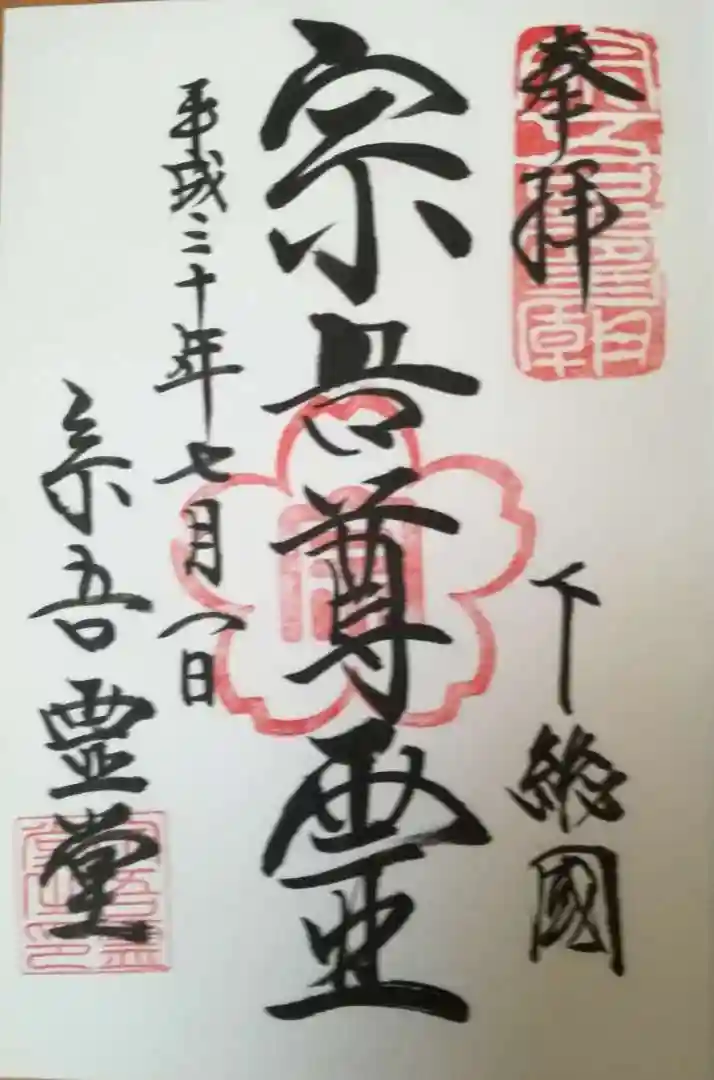 奉拝
下総國
宗吾尊霊
平成三十年七月八日
宗吾霊堂